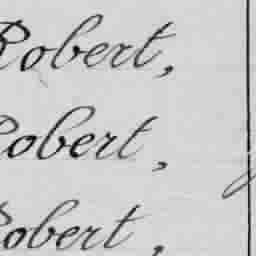 Robert,
Robert,
Robert,